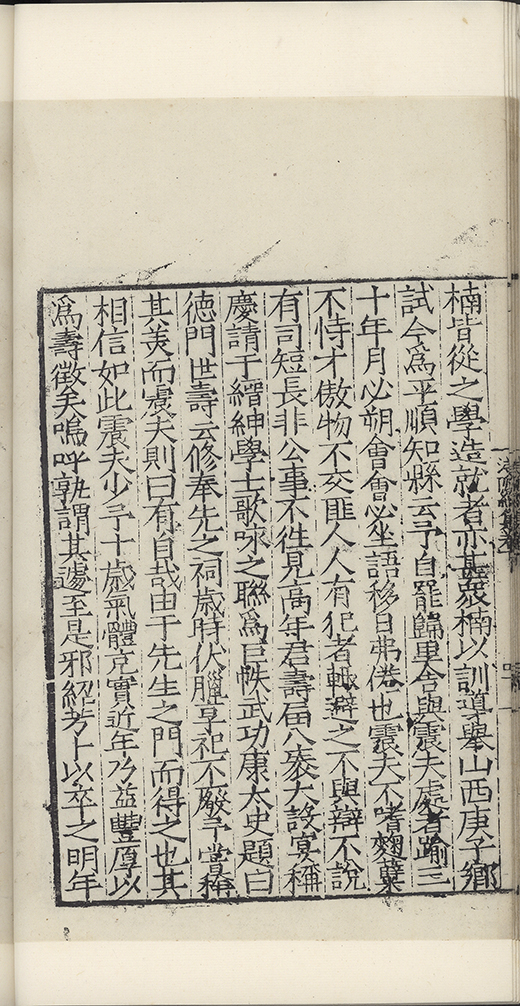 楠皆從之學造就者亦甚衆楠以訓導舉山西庚子鄉
試今爲平順知縣云予自罷歸里舍與震夫處者踰三
十年月必朔會會必坐語移日弗倦也震夫不嗜麴糵
不恃才傲物不交匪人人有犯者輙避之不與辯不說
有司短長非公事不徃見高年君壽届八袠大設宴稱
慶請于縉紳學士歌咏之聯爲巨帙武功康太史題曰
德門世壽云修奉先之祠歳時伏臘享祀不廢予嘗稱
其美而震夫則曰有自哉由于先生之門而得之也其
相信如此震夫少予十歳氣體充實近年乃益豐厚以
爲壽徵矣嗚呼孰謂其遽至是邪紹芳卜以卒之明年